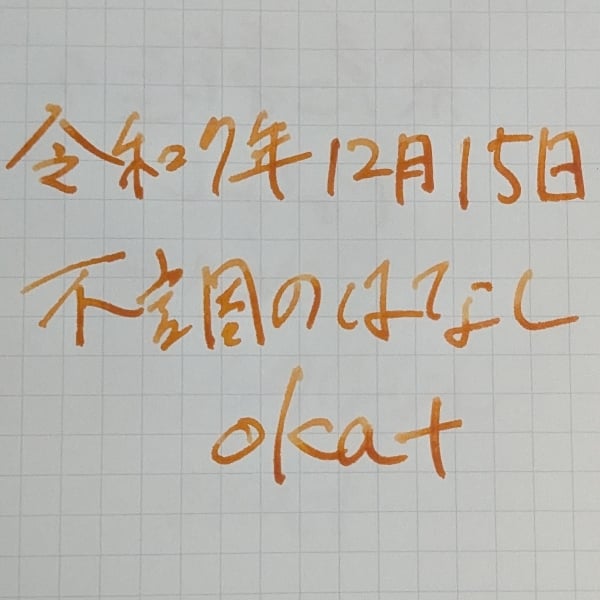 令和7年12月15日
不調のはなし
okat